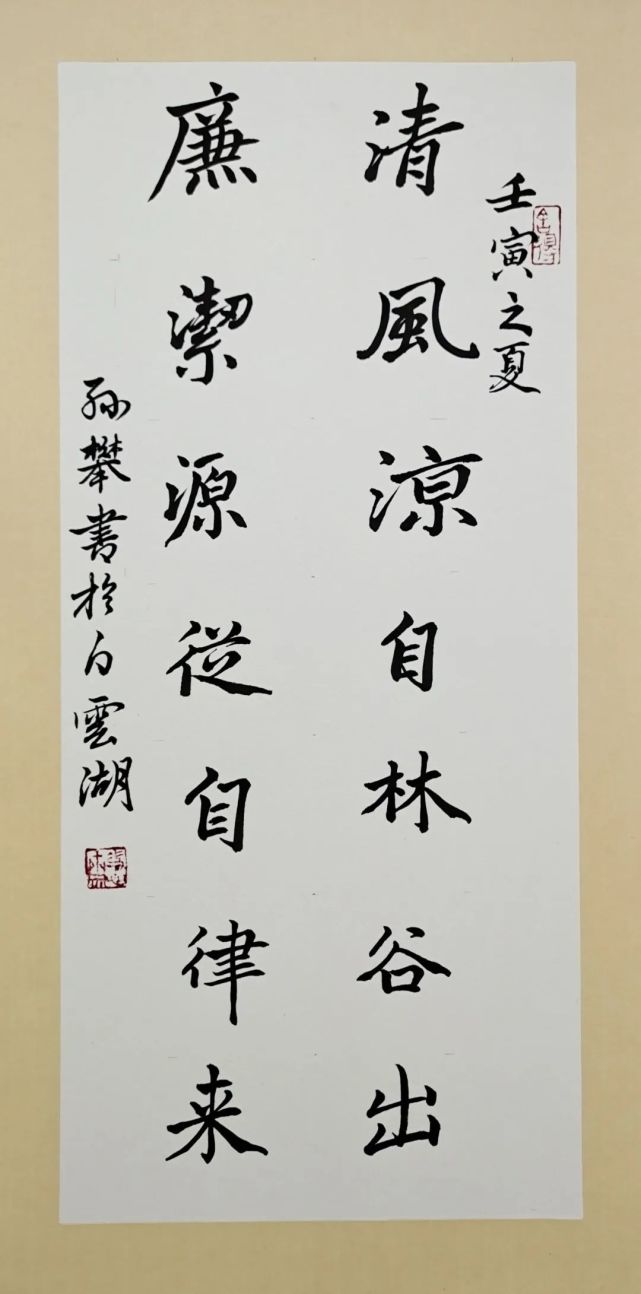 壬寅之夏
清風涼自林谷出
廉潔源從自律来
孙攀書於白雲湖